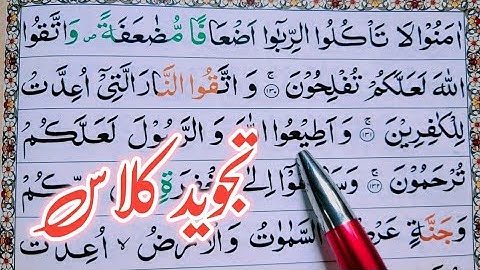 اٰمَنُوْا لَا تَاْكُلُوا الرِّبٰۤوا اَضْعَافًا مُّضٰعَفَةً ۪ وَّاتَّقُوا
اللهَ لَعَلَّكُمْ تُفْلِحُوْنَ ۚ﴿۱۳۰﴾ وَاتَّقُوا النَّارَ الَّتِیْۤ اُعِدَّتْ
لِلْكٰفِرِیْنَ ۚ﴿۱۳۱﴾ وَاَطِیْعُوا اللهَ وَالرَّسُوْلَ لَعَلَّكُمْ
تُرْحَمُوْنَ ۚ﴿۱۳۲﴾
وَجَنَّةٍ عَرْضُهَا السَّمٰوٰتُ وَالْاَرْضُ ۙ اُعِدَّتْ
تجوید کلاس